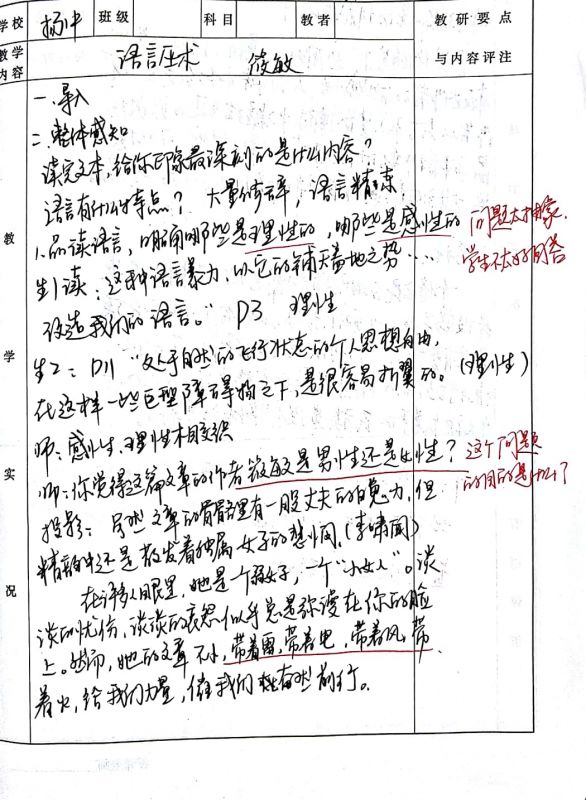 学校 扬中 班级 科目 教者 教研要点
教学内容 语言巫术 筱敏 与内容评注
教学实况
一.导入
二.整体感知
读完文本,给你印象最深刻的是什么内容?
语言有什么特点? 大量修辞,语言精味
1.品读语言,明确哪些是理性的,哪些是感性的 问题太抽象,
生1读:这种语言暴力,以它的铺天盖地之势…… 学生不太好回答
改造我们的语言。” P3 理性
生2:P11 “处于自然的飞行状态的个人思想自由,
在这样一些巨型障碍物之下,是很容易折翼的。(理性)
师:感性、理性相交织
师:你觉得这篇文章的作者筱敏是男性还是女性? 这个问题
投影:虽然文章的骨骼里有一股丈夫的魄力,但 的目的是什么?
精韵中还是散发着独属女子的愁悯。(李啸闻)
在许多人眼里,她是一个弱女子,一个“小女人”。淡
淡的忧伤,淡淡的哀怨似乎总是弥漫在你的脸
上。然而,她的文章不小,带着雷,带着电,带着风,带
着火,给我们力量,催我们奋然前行。